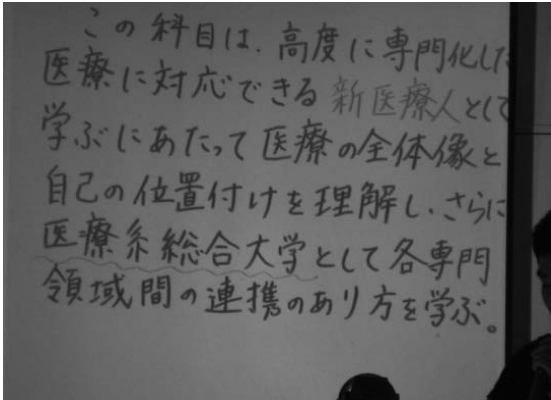 この科目は、高度に専門化した
医療に対応できる新医療人として
学ぶにあたって医療の全体像と
自己の位置付けを理解し、さらに
医療系総合大学として各専門
領域間の連携のあり方を学ぶ。